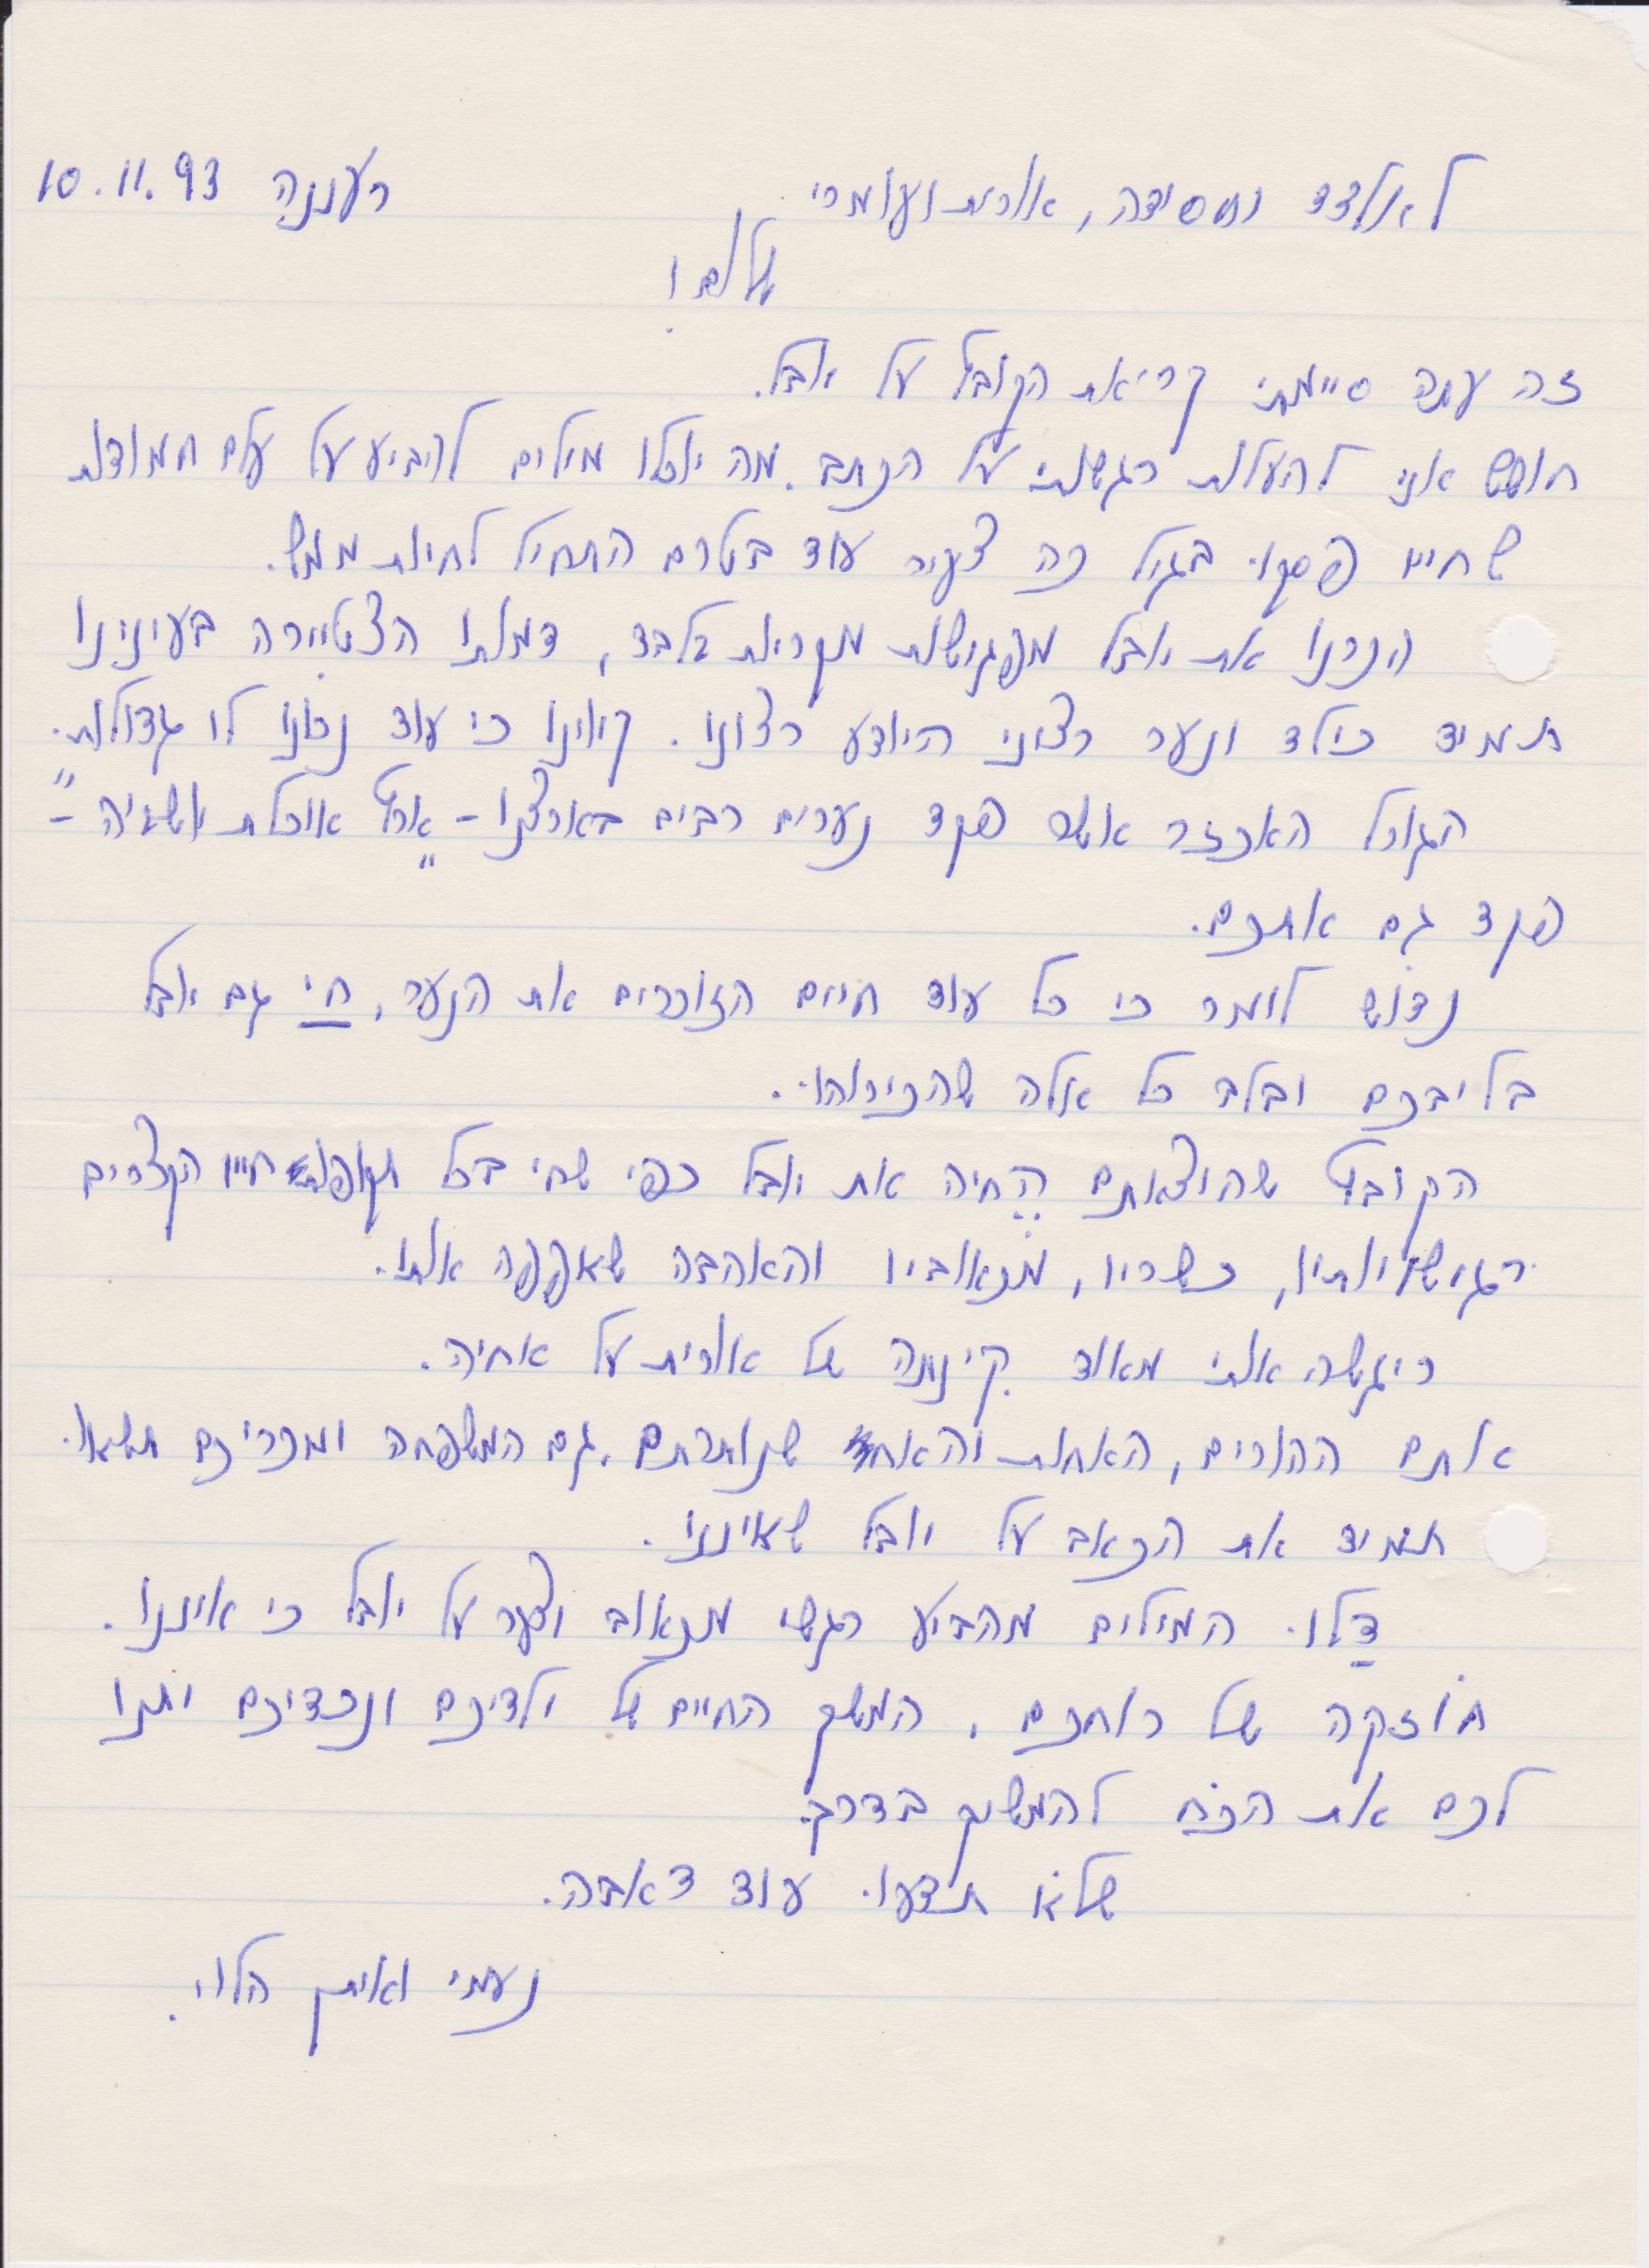 רעננה 10.11.93
לאלדד וחסידה, אורית ועומרי
שלום!
זה עתה סיימתי קריאת הקובץ על יובל.
חושש אני להעלות רגשותי על הכתב. מה יוכלו מילים להביע על עלם חמודות
שחייו פסקו בגיל כה צעיר עוד בטרם התחיל לחיות ממש.
הכרנו את יובל מפגישות מקריות בלבד, דמותו הצטיירה בעינינו
תמיד כילד ונער רציני היודע רצונו. קוינו כי עוד נכונו לו גדולות.
הגורל האכזר אשר פקד נערים רבים בארצנו - "ארץ אוכלת יושביה" -
פקד גם אתכם.
נדוש לומר כי כל עוד חיים הזוכרים את הנער, חי גם יובל
בליבכם ובלב כל אלה שהכירוהו.
הקובץ שהוצאתם הֶחיה את יובל כפי שחי בכל תקופת חייו הקצרים
רגישויותיו, כשריו, מכאוביו והאהבה שאפפה אותו.
ריגשה אותי מאוד קינתה של אורית על אחיה.
אותם ההורים, האחות והאח שנותרתם, גם המשפחה ומכריכם תשאו
תמיד את הכאב על יובל שאיננו.
דַלו המילים מהביע רגשי מכאוב וצער על יובל כי איננו.
חוזקה של רוחכם, המשך החיים של ילדיכם ונכדיכם יתנו
לכם את הכח להמשיך בדרך.
שלא תדעו עוד דאבה.
נעמי ואיתן הלוי.